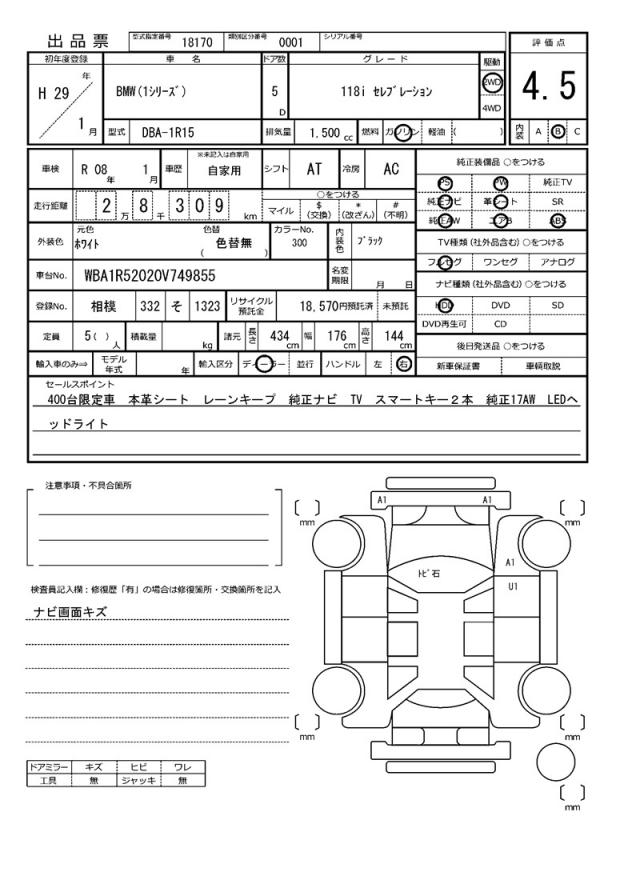 出品票 型式指定番号 18170 類別区分番号 0001 シリアル番号
評価点
4.5
初年度登録 車名 ドア数 グレード 駆動
H 29 年 1 月
BMW(1シリーズ) 5 D 118i セレブレーション 2WD
4WD
型式 DBA-1R15 排気量 1.500 cc 燃料 ガソリン 軽油 ( ) 内装 A B C
車検 R 08 年 1 月 車歴 ※未記入は自家用 自家用 シフト AT 冷房 AC
純正装備品 ○をつける
PS PW 純正TV
純正ナビ 革シート SR
純正AW エアB ABS
走行距離 2 万 8 千 3 0 9 km ○をつける マイル $(交換) *(改ざん) #(不明)
TV種類(社外品含む)○をつける
フルセグ ワンセグ アナログ
外装色 元色 ホワイト 色替 ( 色替無 ) カラーNo. 300 内装色 ブラック
車台No. WBA1R52020V749855 名変期限 月 日
ナビ種類(社外品含む)○をつける
HDD DVD SD
DVD再生可 CD
登録No. 相模 332 そ 1323 リサイクル預託金 18,570円預託済 未預託
定員 5( ) 人 積載量 kg 諸元 長さ 434 cm 幅 176 cm 高さ 144 cm
後日発送品 ○をつける
新車保証書 車輌取説
輸入車のみ⇒ モデル年式 年 輸入区分 ディーラー 並行 ハンドル 左 右
セールスポイント
400台限定車 本革シート レーンキープ 純正ナビ TV スマートキー2本 純正17AW LEDヘ
ッドライト
注意事項・不具合箇所
検査員記入欄:修復歴「有」の場合は修復箇所・交換箇所を記入
ナビ画面キズ
ドアミラー キズ ヒビ ワレ
工具 無 ジャッキ 無
A1 A1
mm mm
A1
トビ石
U1
mm mm
mm